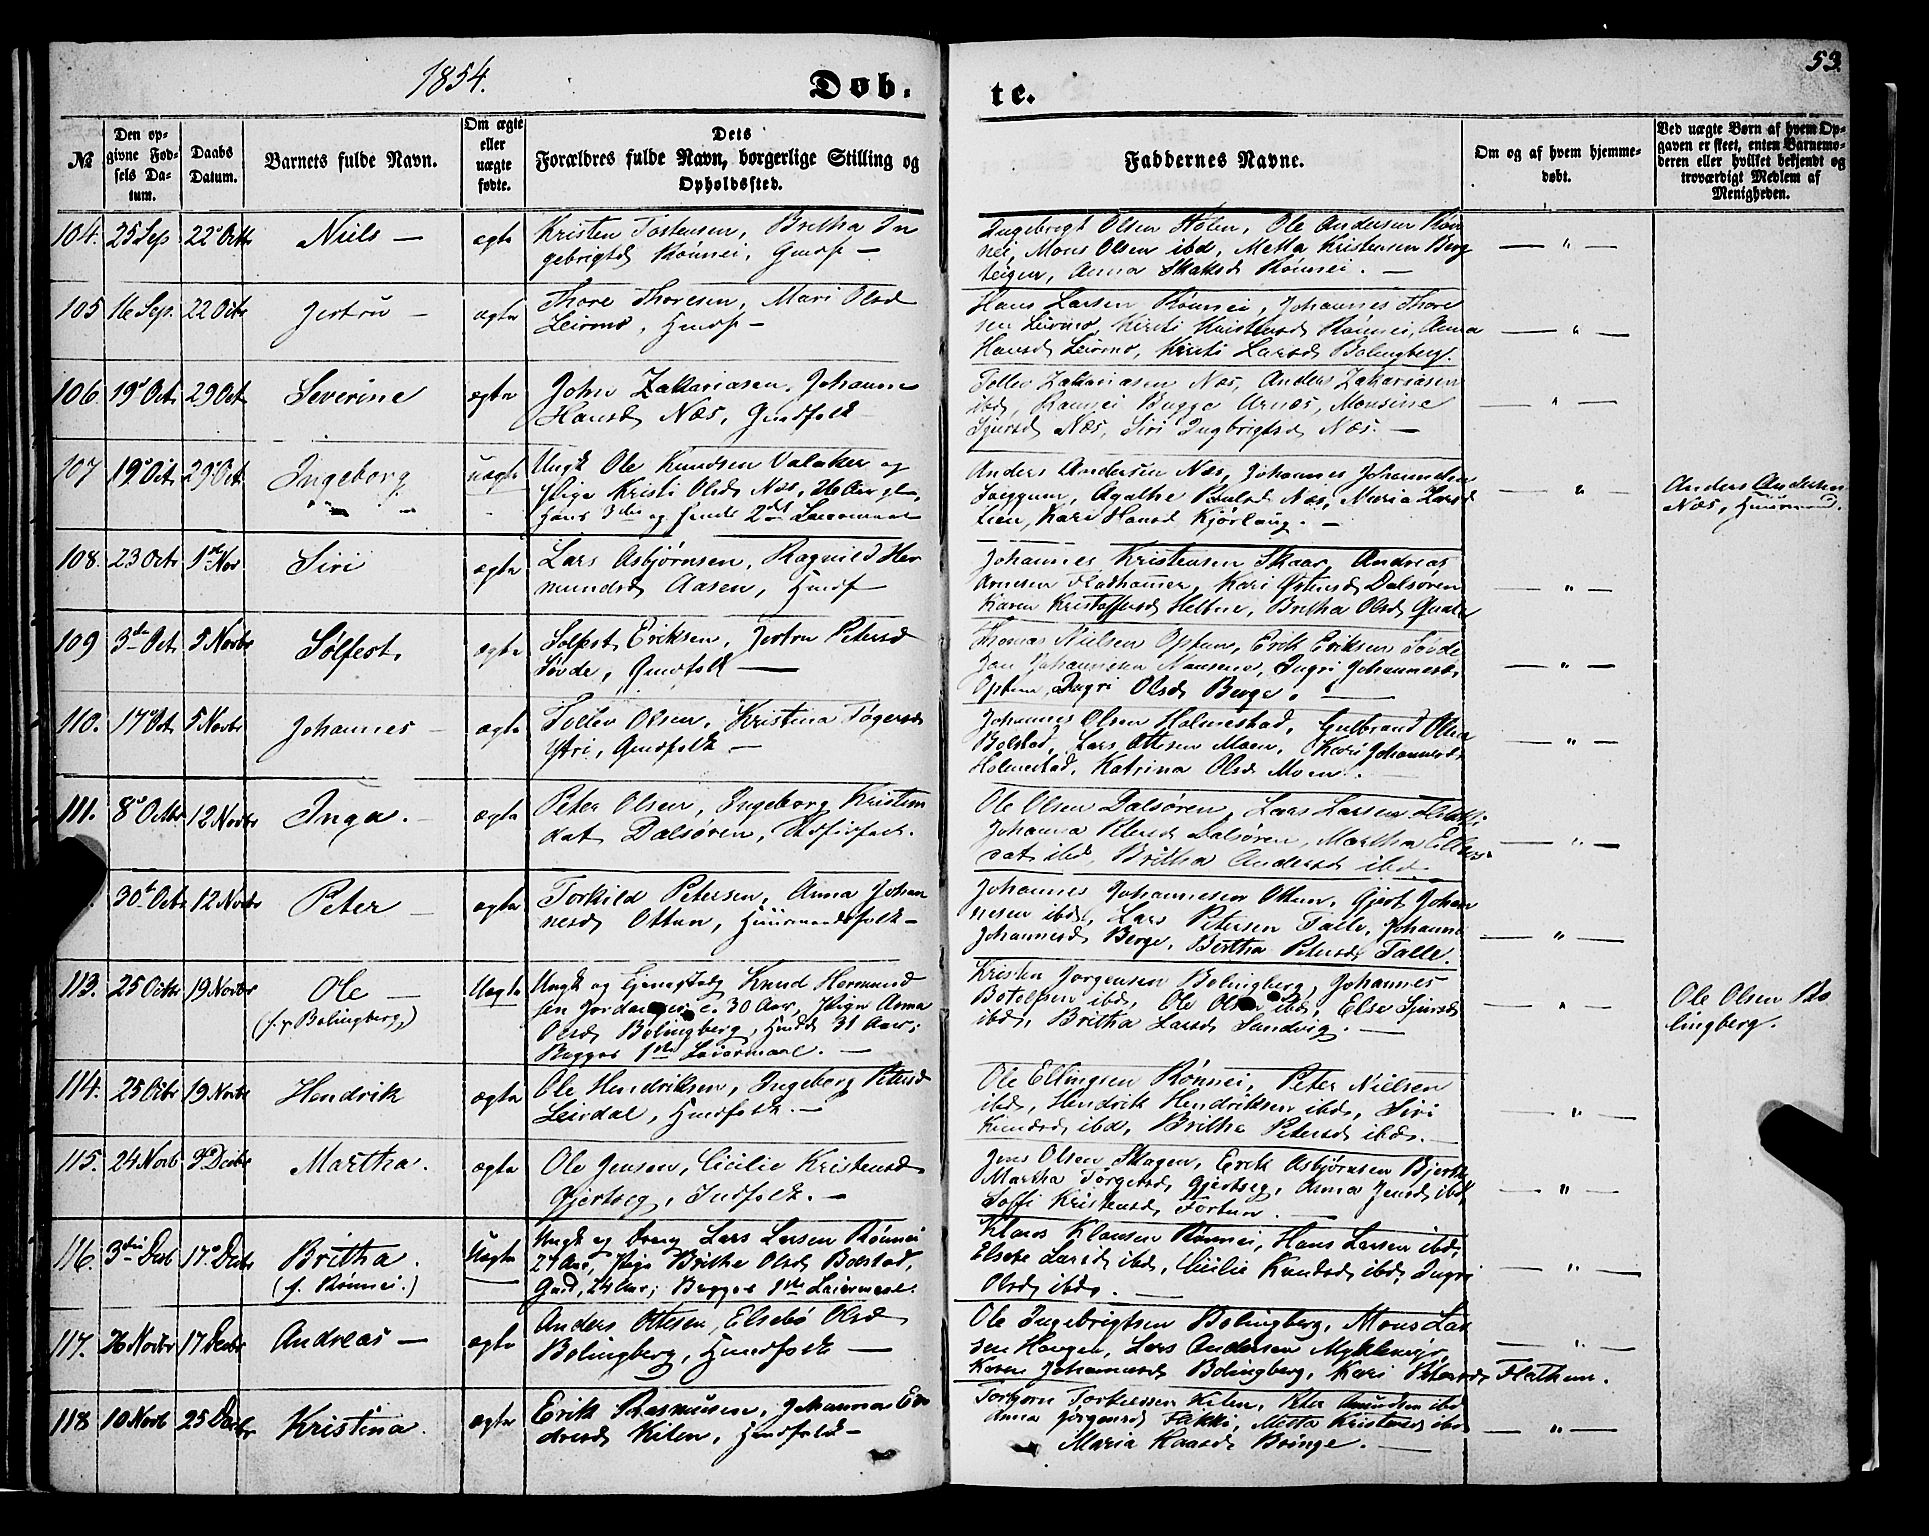 1854.
Døb. te.
53.
№
Den opgivne Fødsels Datum.
Daabs Datum.
Barnets fulde Navn.
Om ægte eller uægte fødte.
Dets Forældres fulde Navn, borgerlige Stilling og Opholdssted.
Faddernes Navne.
Om og af hvem hjemmedøbt.
Ved uægte Børn af hvem Opgaven er skeet, enten Barnemoderen eller hvilket bekjendt og troværdigt Medlem af Menigheden.
104. 25 Sep 22 Octb Niels — ægte
Kristen Tostensen, Britha In
gebrigtsd Rönnei, Gmdf —
Ingebrigt Olsen Holen, Ole Andersen Rön
nei, Mons Olsen ibd, Metta Kristensen Berg
teigen, Anna Skaksd Rönnei. —
— " —
105 16 Sep. 22 Octb Jertru — ægte
Thore Thoresen, Mari Olsd
Leirmo, Hmdf —
Hans Larsen Rönnei, Johannes Thore
sen Leirmo, Kirsti Kristensd Rönnei, Anna
Hansd Leirmo, Kirsti Larsd Bolingberg.
— " —
106 19 Oct 29 Oct Severine ægte
John Zakariasen, Johanne
Hansd Næs, Gmdfolk
Tollev Zakariasen Næs, Anders Zakariasen
ibd, Rannei Bugge Arnæs, Monsine
Sjursd Næs, Siri Ingbrigtsd Næs. —
— " —
107 19 Oct 29 Oct Ingeborg uægte
Ungk Ole Knudsen Valaker og
Pige Kristi Olsd Næs, 26 Aar gl,
Hans 3die og Hendes 2det Leiermaal
Anders Andersen Næs, Johannes Johannesen
Agathe Paulsd Næs, Maria Larsd
Lien, Kari Hansd Kjörlaug. —
— " —
Anders Andersen
Næs, Huusmand.
108. 23 Octb 1ste Nov Siri ægte
Lars Asbjørnsen, Ragnild Her
mundsd Aasen, Hmdf
Johannes Kristensen Skaar, Andreas
Arnesen Fladhammer, Kari Østensd Dalsören
Karen Kristoffersd Heltne, Britha Olsd Quale
— " —
109 3die Oct 5 Novbr Sölfest. ægte
Solfest Eriksen, Jertru Petersd
Sövde, Gmdfolk —
Thomas Nielsen Optun, Erik Eriksen Sövde
Jon Johannesen Ingri Johannesd,
Optun, Ingri Olsd Berge. —
— " —
110. 17 Oct 5 Novbr Johannes — ægte
Tollev Olsen, Kristina Togersd
Ytri, Gmdfolk —
Johannes Olsen Holmestad, Gulbrand Olsen
Bolstad, Lars Ottesen Moen, Kari Johannesd
Holmestad, Katrina Olsd Moen. —
— " —
111. 8 Octbr 12 Novbr Inga. — ægte
Peter Olsen, Ingeborg Kristen
dat Dalsören,
Ole Olsen Dalsören, Lars Larsen Flikki
Johanna Petersd Dalsören, Martha Ellens
dat ibd, Britha Andersd ibd.
— " —
30te Octr 12 Novbr Peter — ægte
Torkild Petersen, Anna Johan
nesd Ottun, Huusmandsfolk —
Johannes Johannesen Ottun, Gjert Johan
nesen ibd, Lars Petersen Talle, Johanne
Johannesd Berge, Bertha Petersd Talle.
— " —
113. 25 Octbr 19 Novbr Ole — Uægte
(f. p. Bolingberg)
Ungk og Knud Hermund
sen c. 30 Aar, Pige Anna
Olsd Bolingberg, 31 Aar;
Begges 1ste Leiermaal. —
Kristen Jorgensen Bolingberg, Johannes
Botolfsen ibd, Ole Olsen ibd, Else Sjursd
ibd, Britha Larsd Sandvig. —
— " —
Ole Olsen Bo
lingberg.
114. 25 Octbr 19 Novbr Hendrik ægte
Ole Hendriksen, Ingeborg Petersd
Leirdal, Hmdfolk. —
Ole Ellingsen Rönnei, Peter Nielsen
ibd, Hendrik Hendriksen ibd, Siri
Knudsd ibd, Britha Petersd ibd. —
— " —
115. 24 Novb 3 Decbr Martha. ægte
Ole Jensen, Cicilie Kristensd
Gjertseg, Indfolk. —
Jens Olsen Skagen, Erik Asbjörnsen Bjerk,
Martha Torgersd, Gjertseg, Anna Jensd ibd,
Soffi Kristensd Fortun. —
— " —
116. 3die Decb 17 Decbr Britha. Uægte
(f. Rönnei.)
Ungk og Dreng Lars Larsen Rönnei
27 Aar, Pige Britha Olsd Bolstad,
Gmd, 24 Aar; Begges 1ste Leiermaal.
Klaus Klausen Rönnei, Hans Larsen ibd,
Elsebe Larsd ibd, Cicilie Knudsd ibd, Ingri
Olsd ibd. —
— " —
117. 26 Novbr 17 Decbr Andreas — ægte
Anders Ottesen, Elsebö Olsd
Bolingberg, Hmdfolk —
Ole Ingebrigtsen Bolingberg, Mons Lar
sen Haugen, Lars Andersen Myklemyr,
Karen Johannesd Bolingberg, Kari Petersd, Flathum.
— " —
118 10 Novb 25 Decbr Kristina. ægte
Erik Rasmusen, Johanna En
dresd Kilen, Hmdfolk —
Torbjorn Torkelssen Kilen, Peter Amundsen ibd
Anna Jörgensd Flikki, Metta Kristensd ibd
Maria Haasd Bringe. —
— " —